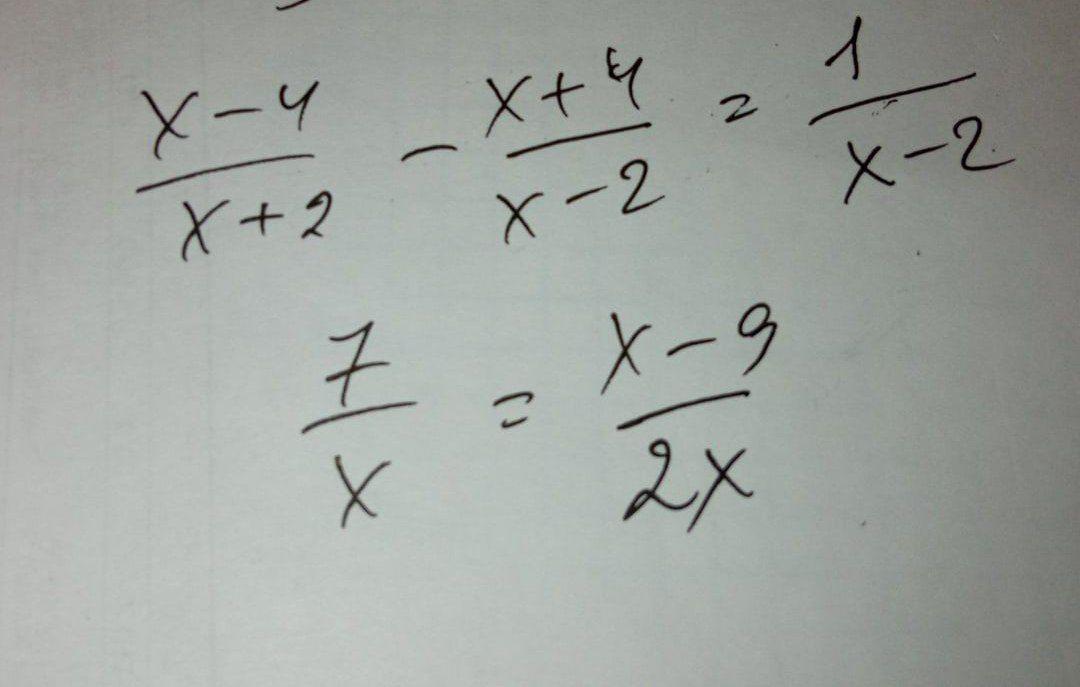 (x-4)/(x+2) - (x+4)/(x-2) = 1/(x-2)
7/x = (x-9)/(2x)